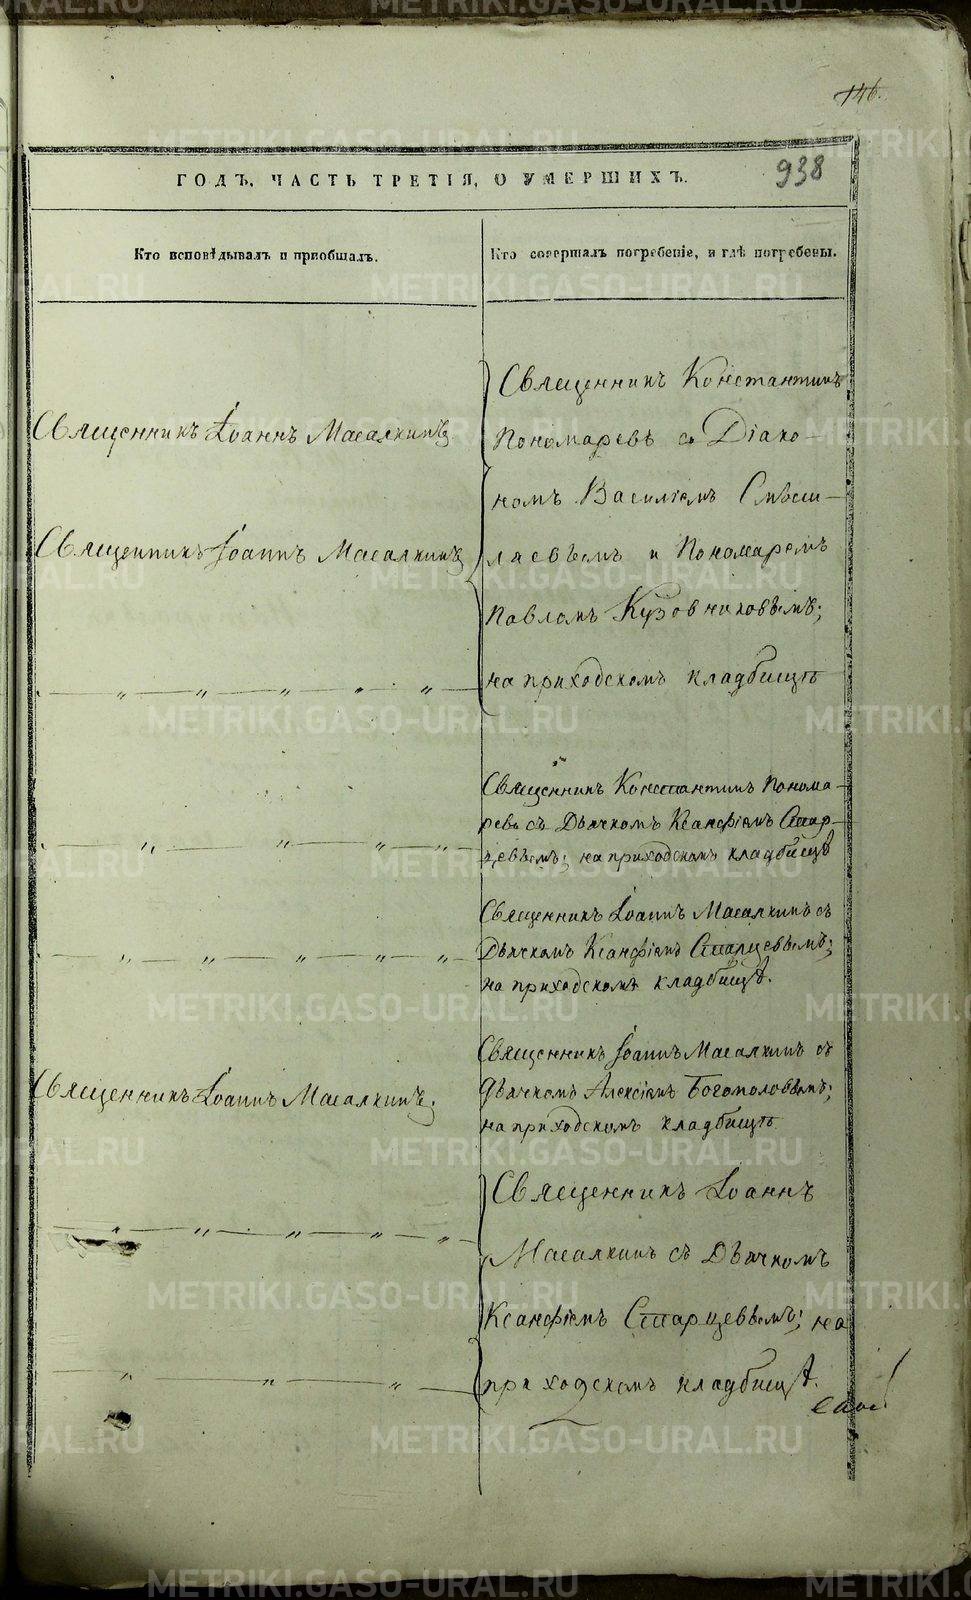 146.
938
ГОДЪ, ЧАСТЬ ТРЕТІЯ, О УМЕРШИХЪ.
Кто исповѣдывалъ и пріобщалъ.
Кто совершалъ погребеніе, и гдѣ погребены.
Священникъ Іоаннъ Масалкинъ
Священникъ Іоаннъ Масалкинъ
Священникъ Константинъ
Пономаревъ со Діако-
номъ Василіемъ
и Пономаремъ
Павломъ Кузовниковымъ;
на приходскомъ кладбищѣ
Священникъ Константинъ Понома-
ревъ съ Дьячкомъ Ксанфіемъ Стар-
цевымъ; на приходскомъ кладбищѣ
Священникъ Іоаннъ Масалкинъ съ
Дьячкомъ Ксанфіемъ Старцевымъ;
на приходскомъ кладбищѣ.
Священникъ Іоаннъ Масалкинъ;
Священникъ Іоаннъ Масалкинъ съ
Дьячкомъ Алексіемъ Богомоловымъ;
на приходскомъ кладбищѣ
Священникъ Іоаннъ
Масалкинъ съ Дьячкомъ
Ксанфіемъ Старцевымъ; на
приходскомъ кладбищѣ.
METRIKI.GASO-URAL.RU